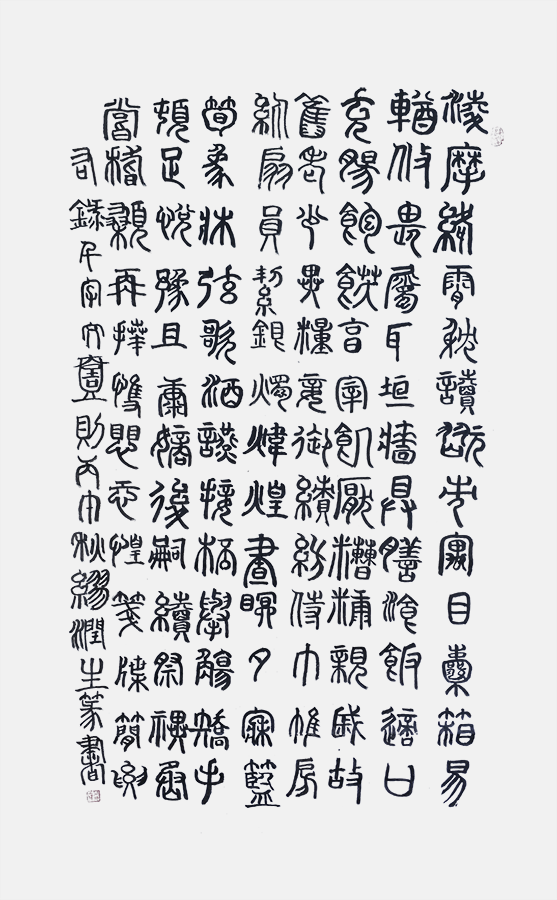 凌摩絳霄耽讀翫市寓目囊箱易
輶攸畏屬耳垣牆具膳飡飯適口
充腸飽飫烹宰飢厭糟糠親戚故
舊老少異糧妾御績紡侍巾帷房
紈扇員絜銀燭煒煌晝眠夕寐籃
筍象牀弦歌酒讌接杯舉觴矯手
頓足悅豫且康嫡後嗣續祭祀烝
嘗稽顙再拜悚懼恐惶箋牒簡要
右錄千字文壹則丙申秋繆潤生篆書